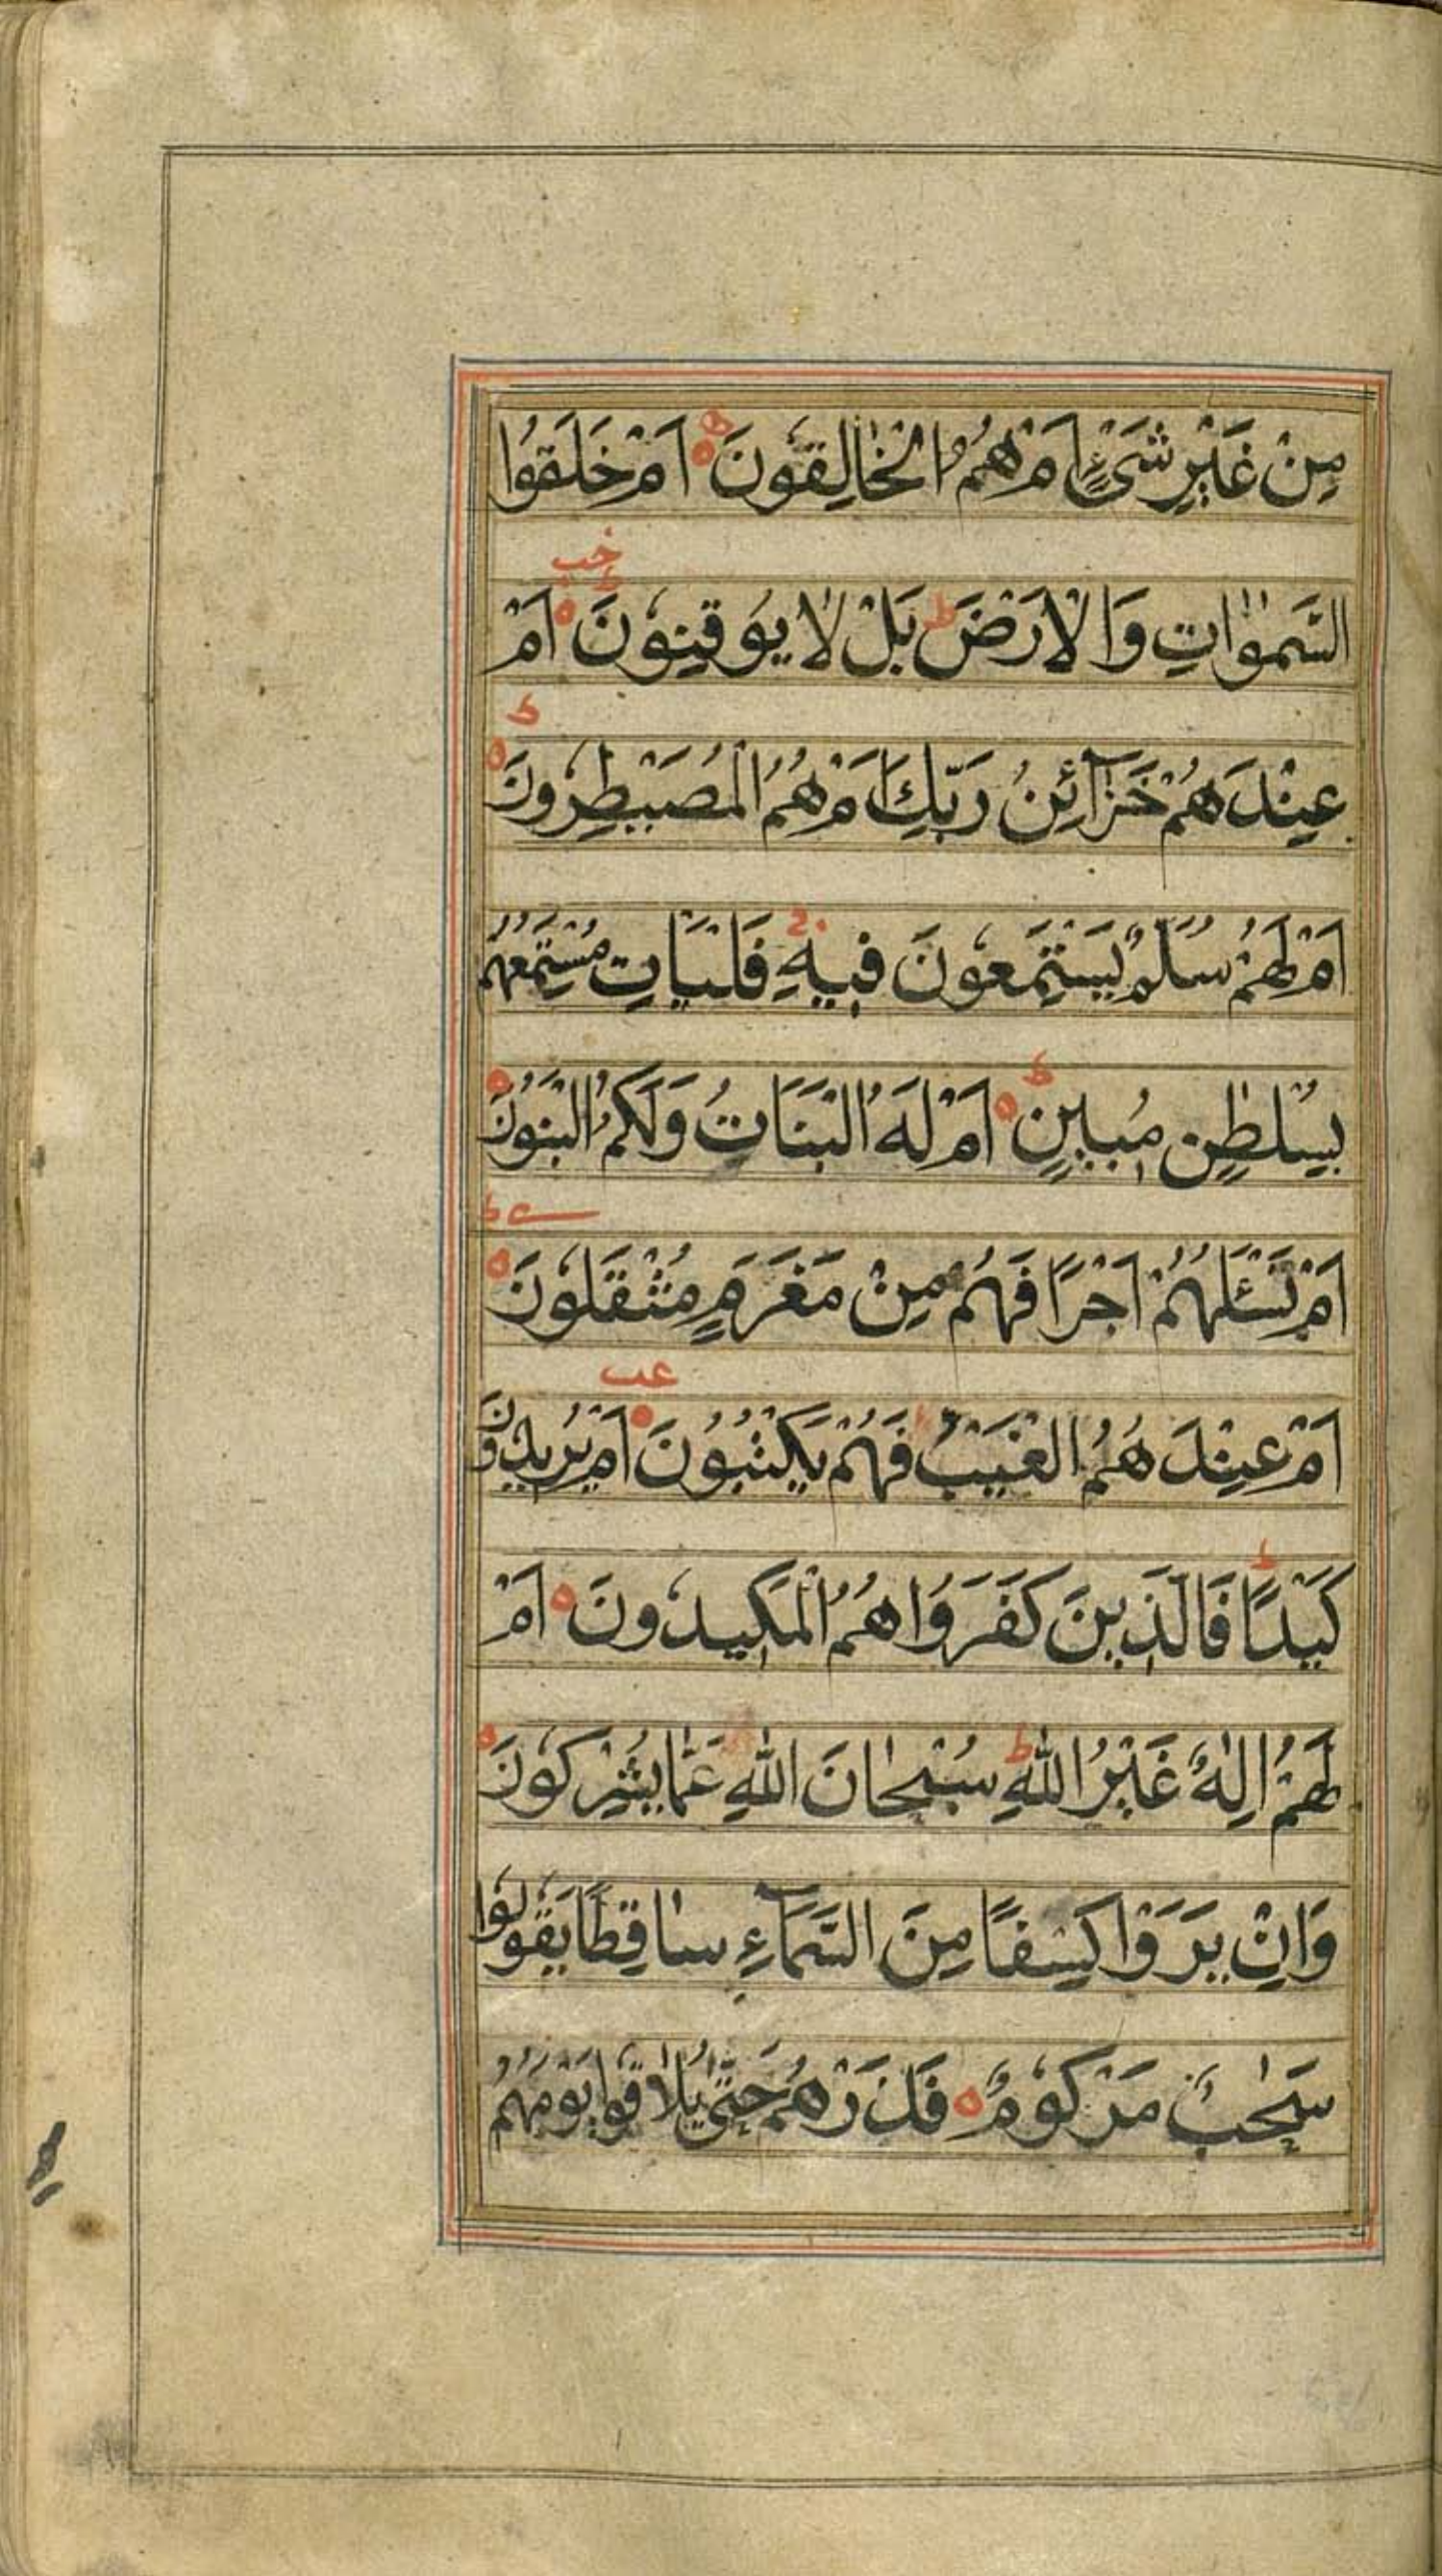 مِنْ غَيْرِ شَیْءٍ اَمْ هُمُ الْخَالِقُوْنَ ه اَمْ خَلَقُوا
السَّمٰوٰاتِ وَالْاَرْضَ ط بَلْ لٰا يُوقِنُوْنَ ه اَمْ
عِنْدَهُمْ خَزَآئِنُ رَبِّكَ اَمْ هُمُ الْمُصَيْطِرُوْنَ ه
اَمْ لَهُمْ سُلَّمٌ يَسْتَمِعُوْنَ فِيهِ ج فَلْيَاتِ مُسْتَمِعُهُمْ
بِسُلْطٰنٍ مُبِينٍ ه اَمْ لَهُ الْبَنَاتُ وَلَكُمُ الْبَنُوْنَ ه
اَمْ تَسْئَلُهُمْ اَجْرًا فَهُمْ مِنْ مَغْرَمٍ مُثْقَلُوْنَ ه
اَمْ عِنْدَهُمُ الْغَيْبُ فَهُمْ يَكْتُبُوْنَ ه اَمْ يُرِيدُوْنَ
كَيْدًا ط فَالَّذِينَ كَفَرُوا هُمُ الْمَكِيدُوْنَ ه اَمْ
لَهُمْ اِلٰهٌ غَيْرُ اللّٰهِ ط سُبْحٰانَ اللّٰهِ عَمّٰا يُشْرِكُوْنَ ه
وَاِنْ يَرَوْا كِسْفًا مِنَ السَّمَآءِ سٰاقِطًا يَقُوْلُوْا
سَحٰابٌ مَرْكُوْمٌ ه فَذَرْهُمْ حَتّٰى يُلٰاقُوْا يَوْمَهُمُ